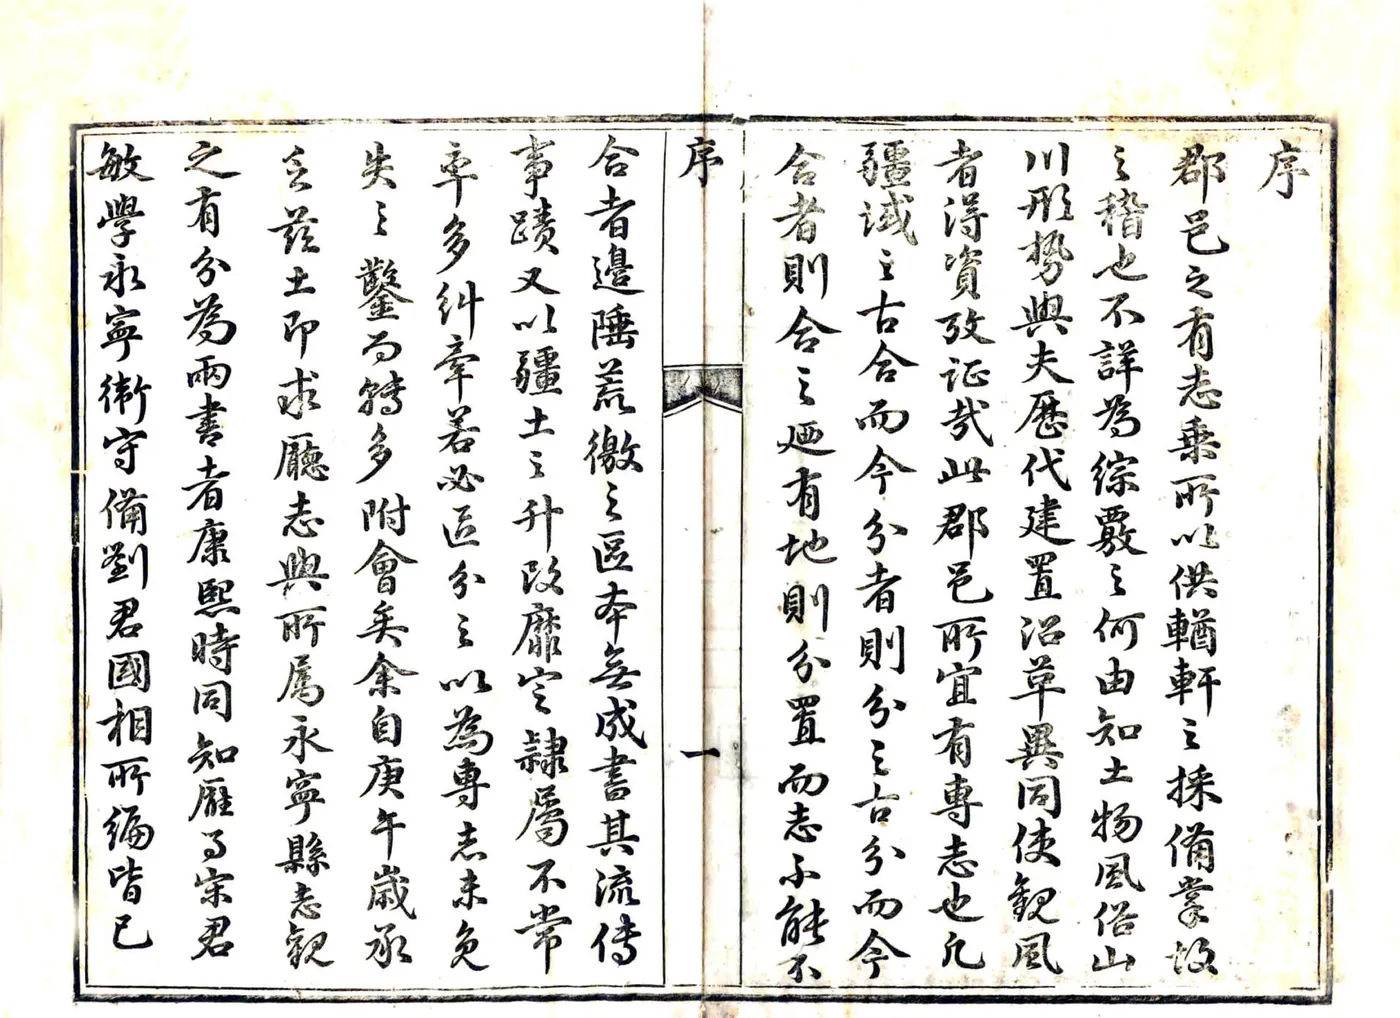 序
郡邑之有志乘所以供輶軒之採備掌故
之稽也不詳為綜覈之何由知土物風俗山
川形勢與夫歷代建置沿革異同使觀風
者得資攷证哉此郡邑所宜有專志也凡
疆域之古合而今分者則分之古分而今
合者則合之廼有地則分置而志不能不
序
一
合者邊陲荒徼之區本無成書其流傳
事蹟又以疆土之升改靡定隸屬不常
率多糾牽若必區分之以為專志未免
失之鑿而轉多附會矣余自庚午歲承
乏茲土即求廳志與所属永寧縣志觀
之有分為兩書者康熙時同知雁乃宋君
敏學永寧衛守備劉君國相所編皆已